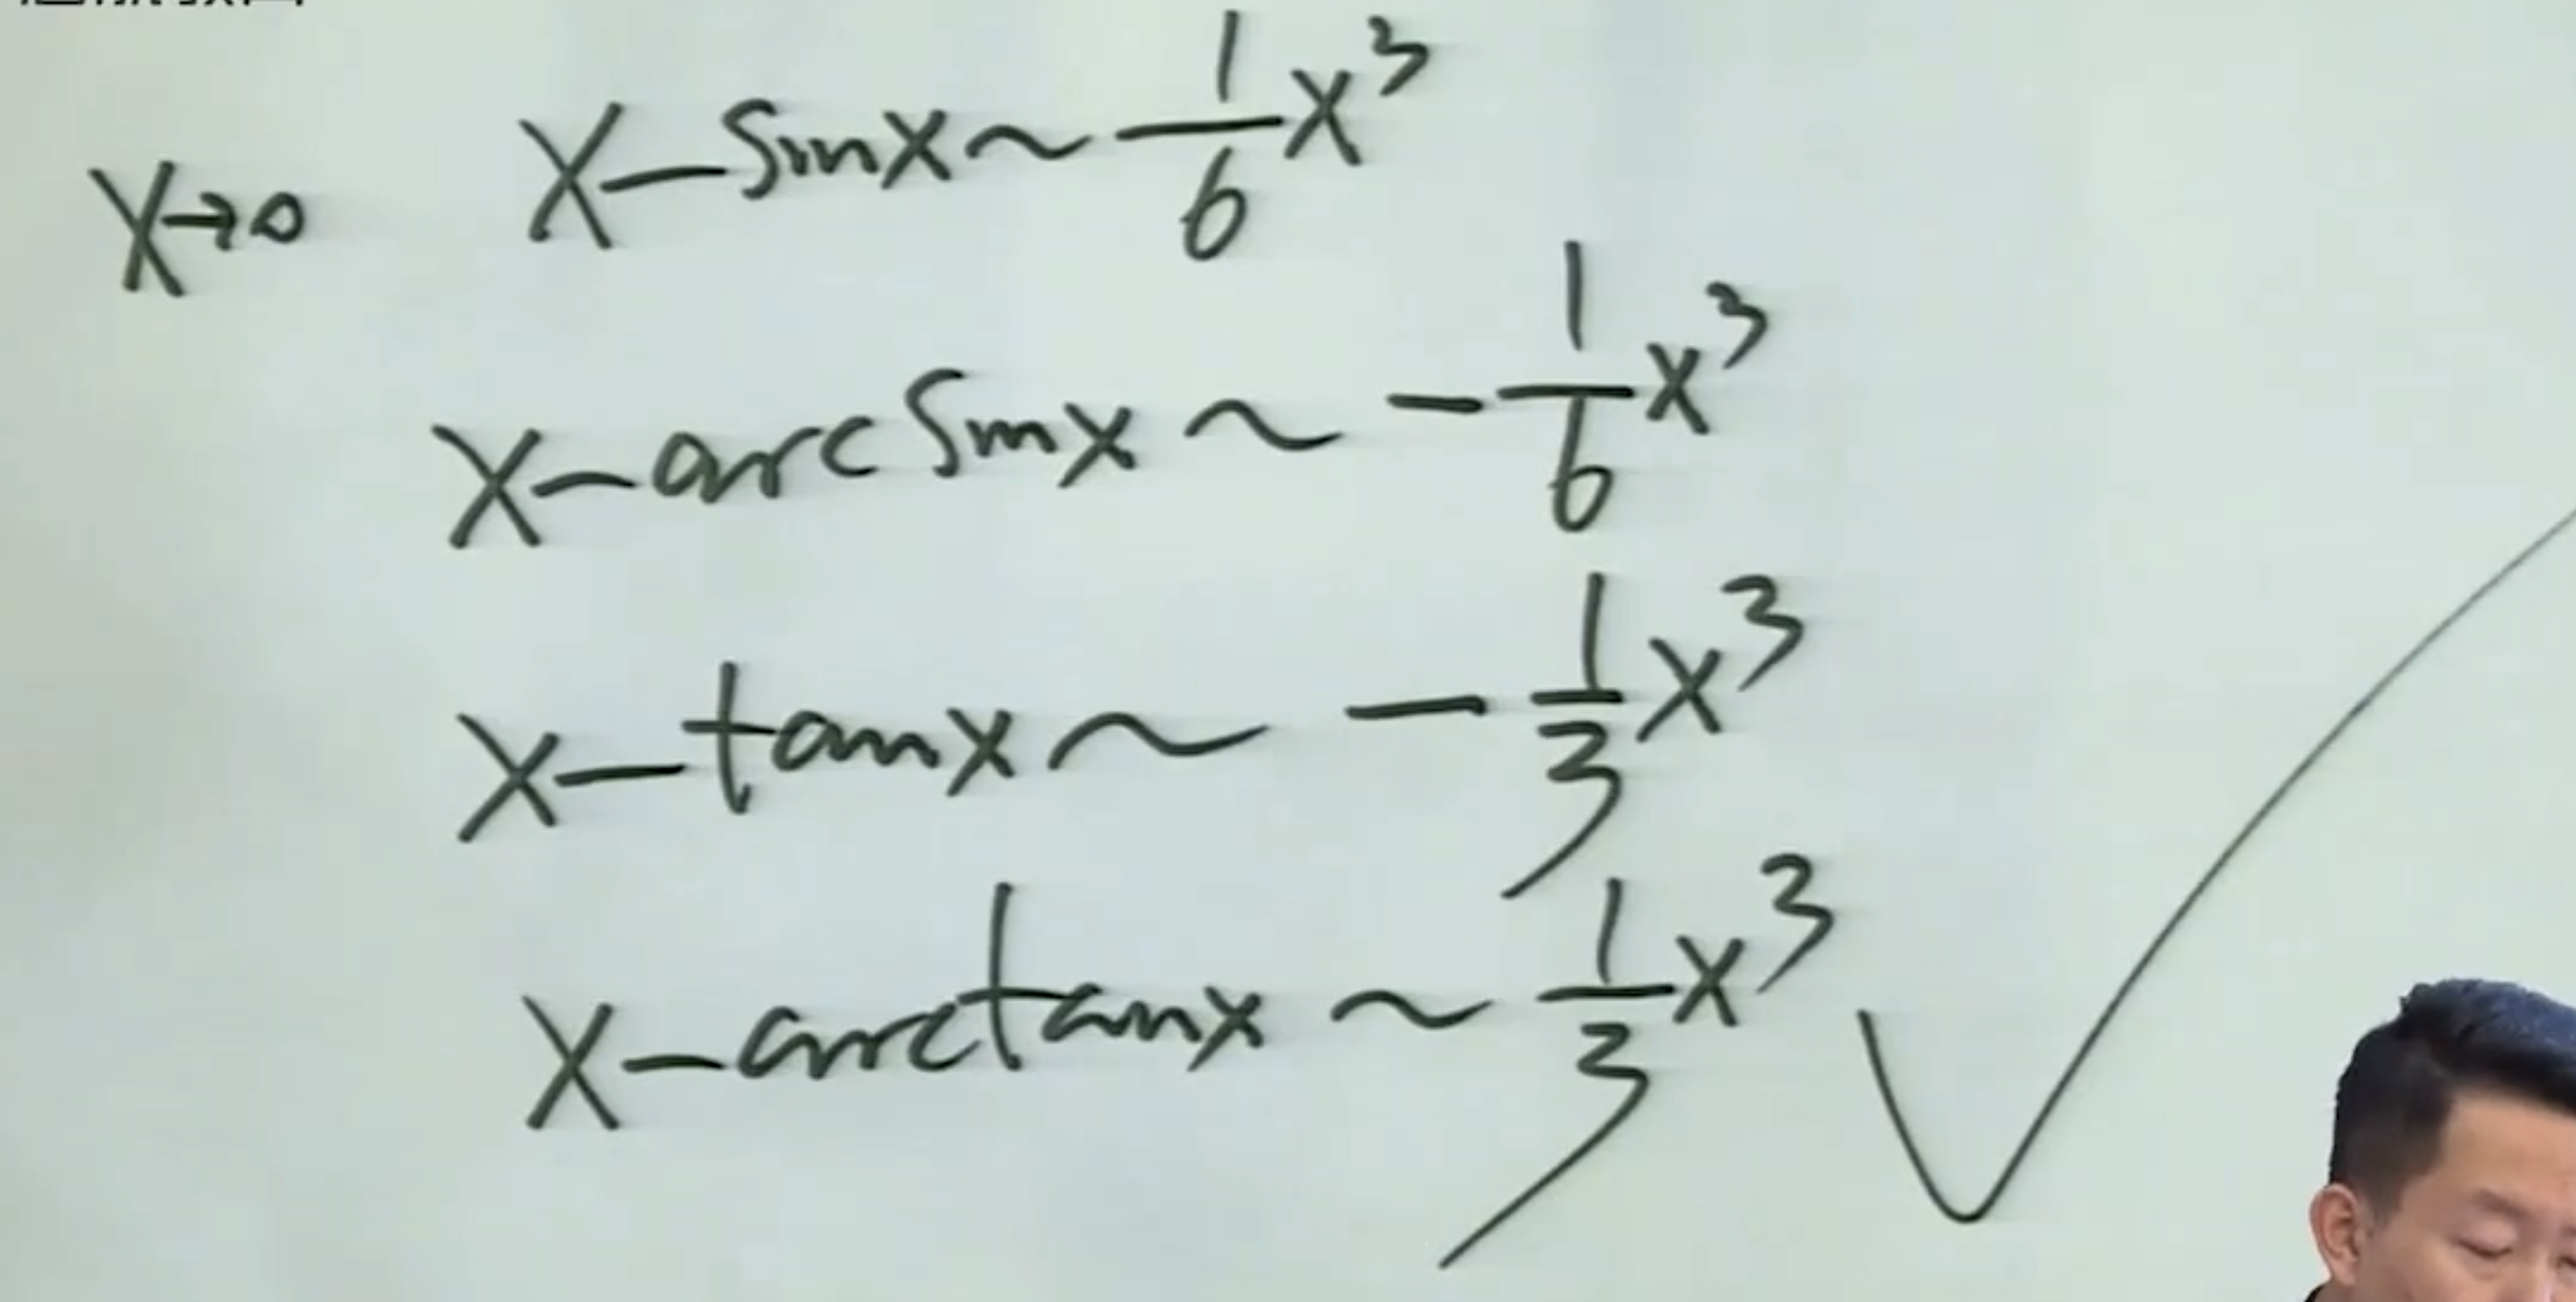 x→0
x-sinx~1/6x³
x-arcsinx~-1/6x³
x-tanx~-1/3x³
x-arctanx~1/3x³